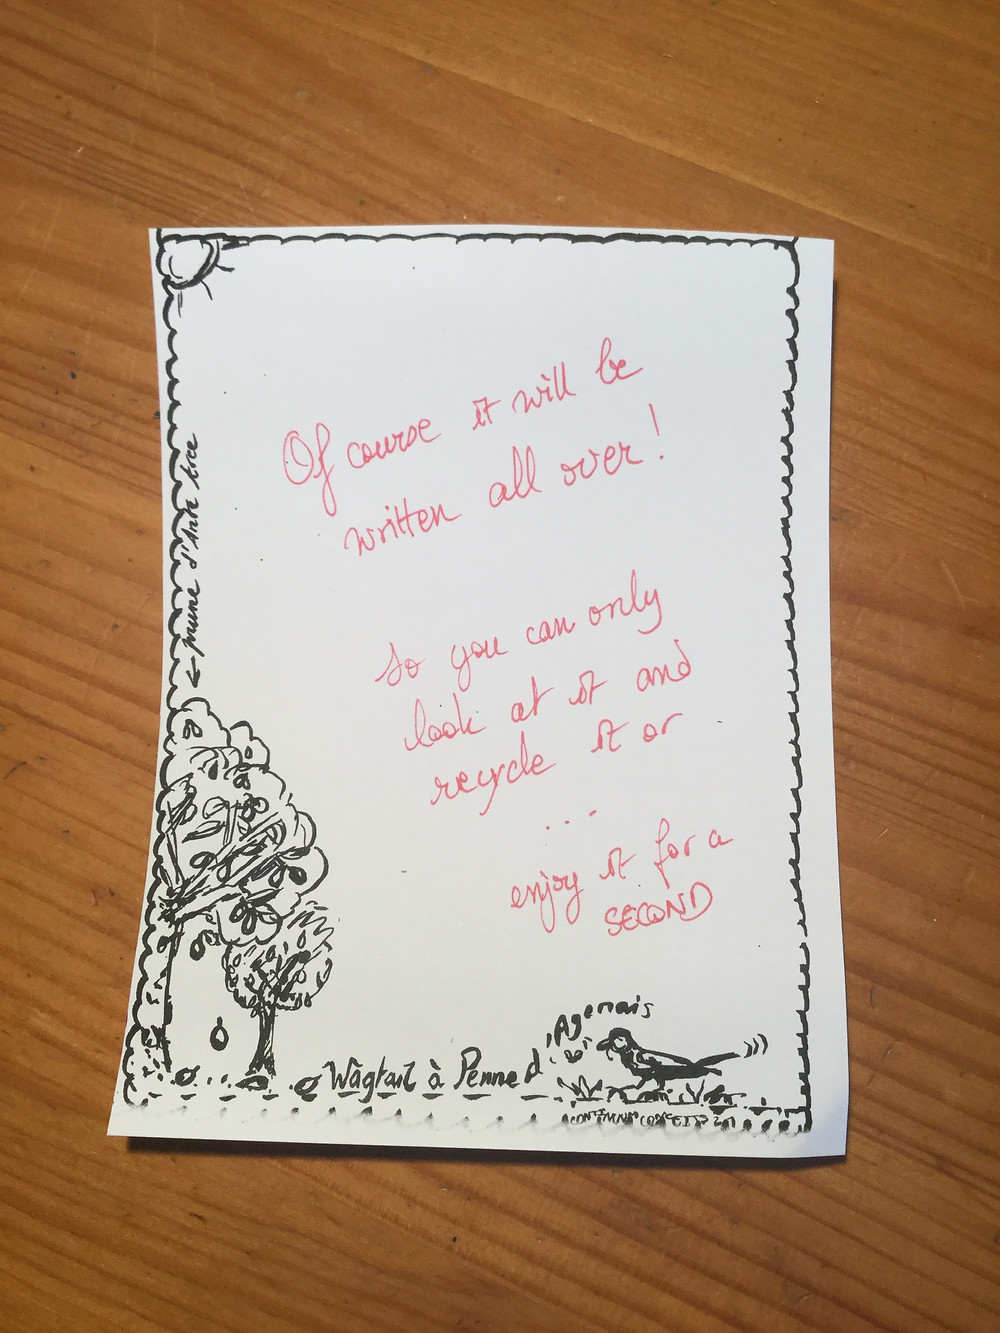 Of course it will be
written all over!
So you can only
look at it and
recycle it or
...
enjoy it for a
SECOND
← prune d'Ente tree
Wagtail à Penne d'Agenais